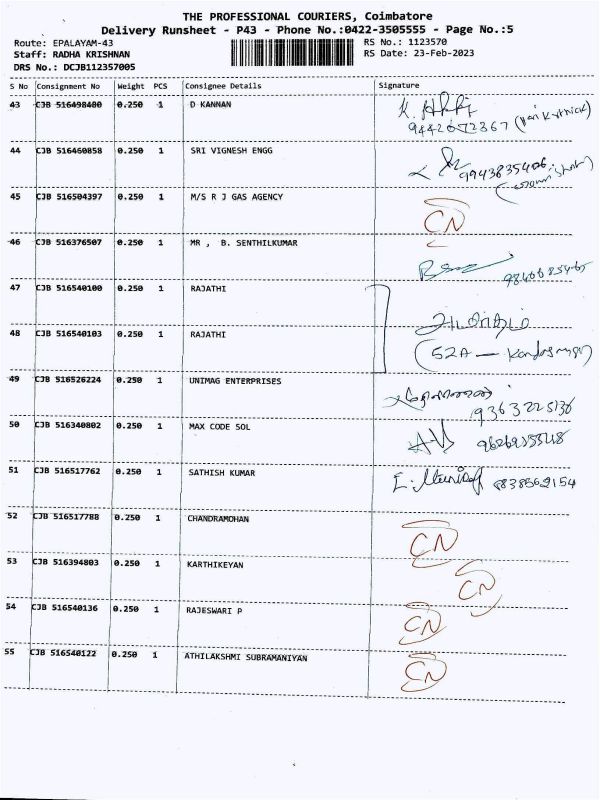 THE PROFESSIONAL COURIERS, Coimbatore
Delivery Runsheet - P43 - Phone No.:0422-3505555 - Page No.:5
Route: EPALAYAM-43 RS No.: 1123570
Staff: RADHA KRISHNAN RS Date: 23-Feb-2023
DRS No.: DCJB112357005
S No Consignment No Weight PCS Consignee Details Signature
43 CJB 516498480 0.250 1 D KANNAN
44 CJB 516460858 0.250 1 SRI VIGNESH ENGG
45 CJB 516504397 0.250 1 M/S R J GAS AGENCY CN
46 CJB 516376507 0.250 1 MR , B. SENTHILKUMAR
47 CJB 516540100 0.250 1 RAJATHI
48 CJB 516540103 0.250 1 RAJATHI (52A —
49 CJB 516526224 0.250 1 UNIMAG ENTERPRISES
50 CJB 516340802 0.250 1 MAX CODE SOL
51 CJB 516517762 0.250 1 SATHISH KUMAR
52 CJB 516517788 0.250 1 CHANDRAMOHAN CN
53 CJB 516394803 0.250 1 KARTHIKEYAN CN
54 CJB 516540136 0.250 1 RAJESWARI P CN
55 CJB 516540122 0.250 1 ATHILAKSHMI SUBRAMANIYAN CN